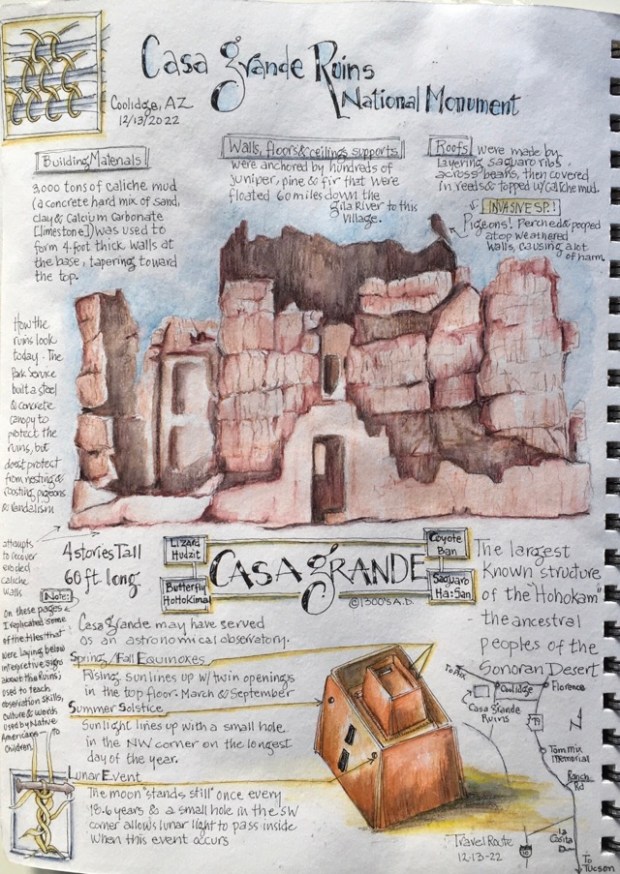 Casa grande Ruins
National Monument
Coolidge, AZ
12/13/2022
Building Materials
3000 tons of caliche mud
(a concrete hard mix of sand,
clay & Calcium Carbonate
[limestone]) was used to
form 4-foot thick walls at
the base, tapering toward
the top.
Walls, floors & ceiling supports
were anchored by hundreds of
juniper, pine & fir that were
floated 60 miles down the
Gila River to this
Village.
Roofs were made by
layering saguaro ribs
across beams, then covered
in reeds & topped w/caliche mud.
INVASIVE SP.!
Pigeons! Perched & pooped
atop weathered
walls, causing a lot
of harm.
How the
ruins look
today - The
Park Service
built a steel
& concrete
canopy to
protect the
ruins, but
doesn't protect
from nesting &
roosting pigeons
& vandalism
attempts
to cover
eroded
caliche
walls
4 stories Tall
60 ft long
Lizard
Hudzit
Coyote
Ban
Butterfly
HoHokimal
Saguaro
Ha:San
CASA grANDE
©1300's A.D.
The largest
known structure
of the "Hohokam"
the ancestral
peoples of the
Sonoran Desert
Note:
On these pages
I replicated some
of the tiles that
were laying below
interpretive signs
about the ruins;
used to teach
observation skills,
culture & words
used by Native
Americans to
Children.
Casa grande may have served
as an astronomical observatory.
Spring/Fall Equinoxes
Rising sun lines up w/ twin openings
in the top floor. March & September
Summer Solstice
Sunlight lines up with a small hole
in the NW corner on the longest
day of the year.
Lunar Event
The moon "stands still" once every
18.6 years & a small hole in the SW
corner allows lunar light to pass inside
when this event occurs
To Phx
Coolidge
Florence
Casa grande
Ruins
79
N
Tom Mix
Memorial
Ranch
Rd
La
Casita
10
To
Tucson
Travel Route
12-13-22